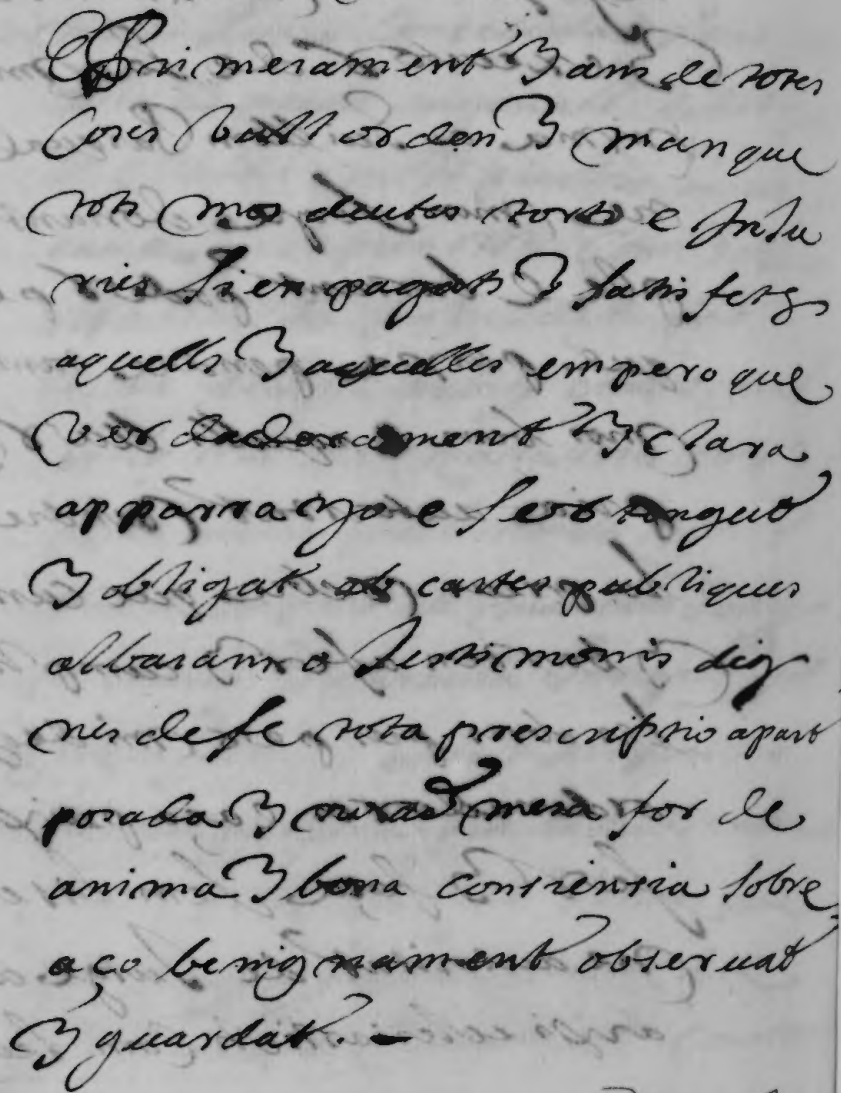 Primerament y ans de totes
coses vull orden y man que
tots mos deutes torts e Inju
ries sien pagats y satisfets
aquells y aquelles empero que
verdaderament y clara
apparra yo e ser tengut
y obligat ab cartes publiques
albarans o testimonis dig
nes de fe tota prescriptio apart
posada y mesa for de
anima y bona consiensia sobre
aço benignament obseruat
y guardat. —